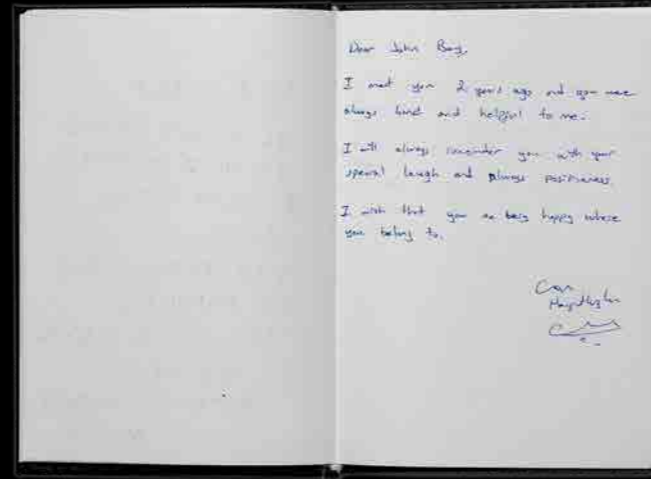 Dear John Boy,
I met you 2 years ago and you were
always kind and helpful to me.
I will always remember you with your
special laugh and always positiveness.
I wish that you are being happy where
you belong to.
Can